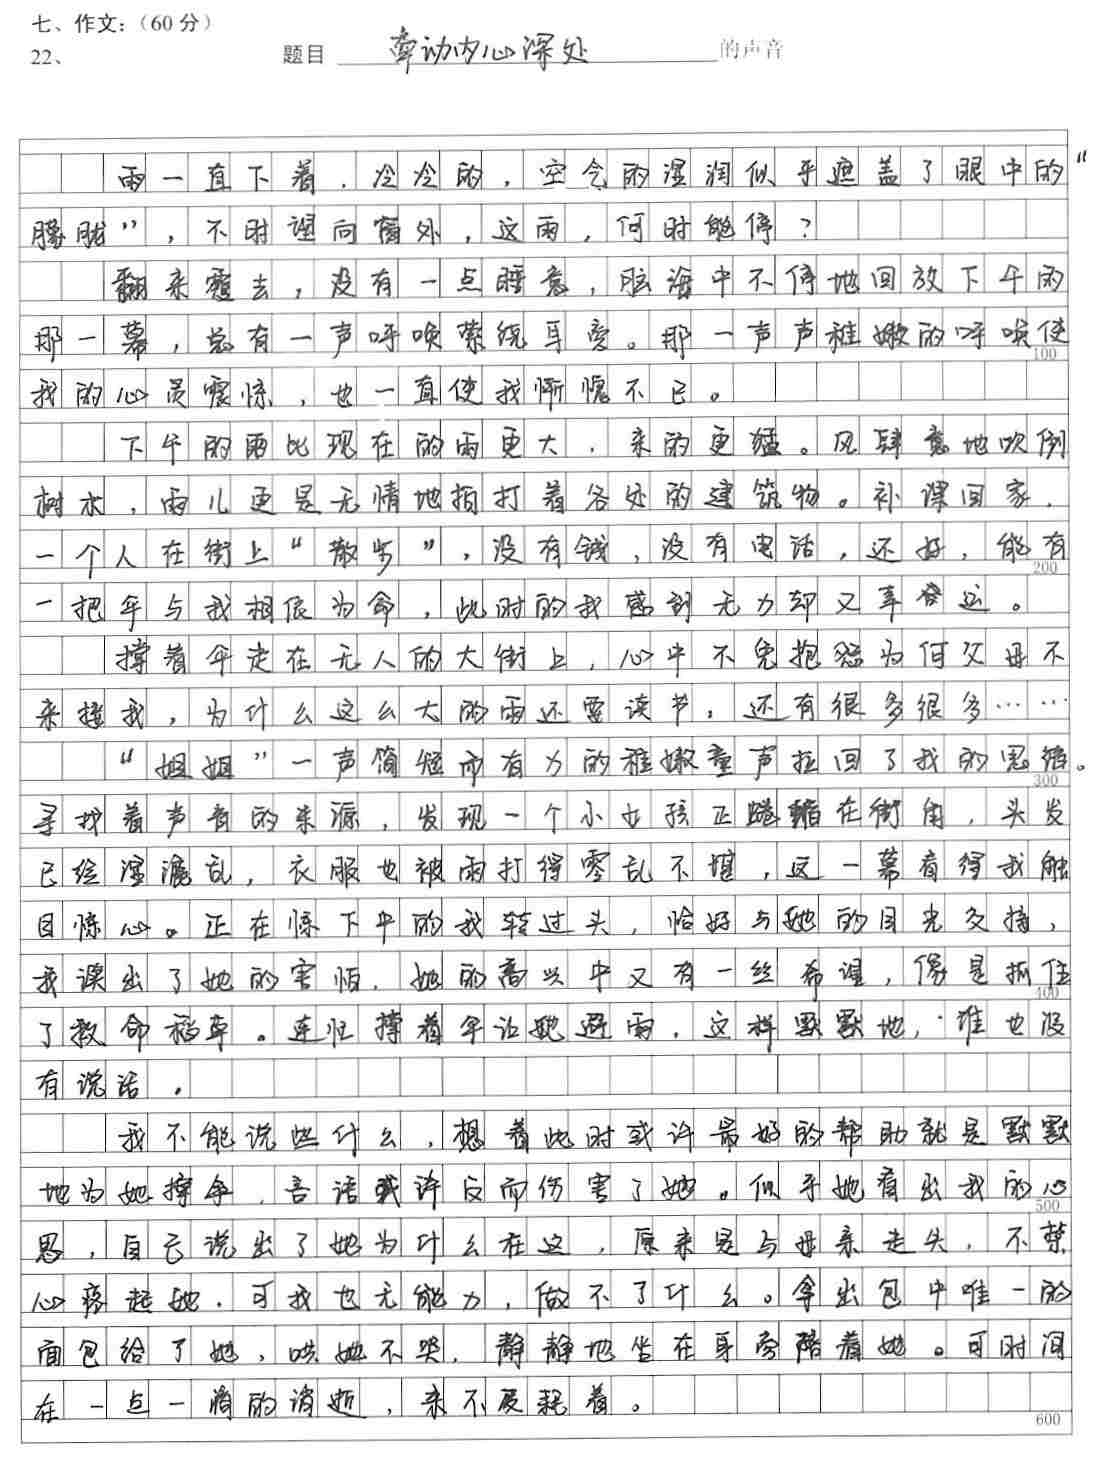 七、作文:（60分）
22、 题目 牵动内心深处 的声音
雨一直下着，冷冷的，空气的湿润似乎遮盖了眼中的“
朦胧”，不时望向窗外，这雨，何时能停？
翻来覆去，没有一点睡意，脑海中不停地回放下午的
那一幕，总有一声呼唤萦绕耳旁。那一声声稚嫩的呼唤使
100
我的心灵震惊，也一直使我惭愧不已。
下午的雨比现在的雨更大，来的更猛。风肆意地吹倒
树木，雨儿更是无情地拍打着各处的建筑物。补课回家，
一个人在街上“散步”，没有钱，没有电话，还好，能有
200
一把伞与我相依为命，此时的我感到无力却又幸运。
撑着伞走在无人的大街上，心中不免抱怨为何父母不
来接我，为什么这么大的雨还要读书，还有很多很多……
“姐姐”一声简短而有力的稚嫩童声拉回了我的思绪。
300
寻找着声音的来源，发现一个小女孩正蜷缩在街角，头发
已经湿漉乱，衣服也被雨打得零乱不堪，这一幕看得我触
目惊心。正在惊下中的我转过头，恰好与她的目光交接，
我读出了她的害怕，她的高兴中又有一丝希望，像是抓住
400
了救命稻草。连忙撑着伞让她避雨，这样默默地，谁也没
有说话。
我不能说些什么，想着此时或许最好的帮助就是默默
地为她撑伞，言语或许反而伤害了她。似乎她看出我的心
500
思，自己说出了她为什么在这，原来是与母亲走失，不禁
心疼起她，可我也无能力，做不了什么。拿出包中唯一的
面包给了她，哄她不哭，静静地坐在身旁陪着她。可时间
在一点一滴的消逝，来不及耗着。
600